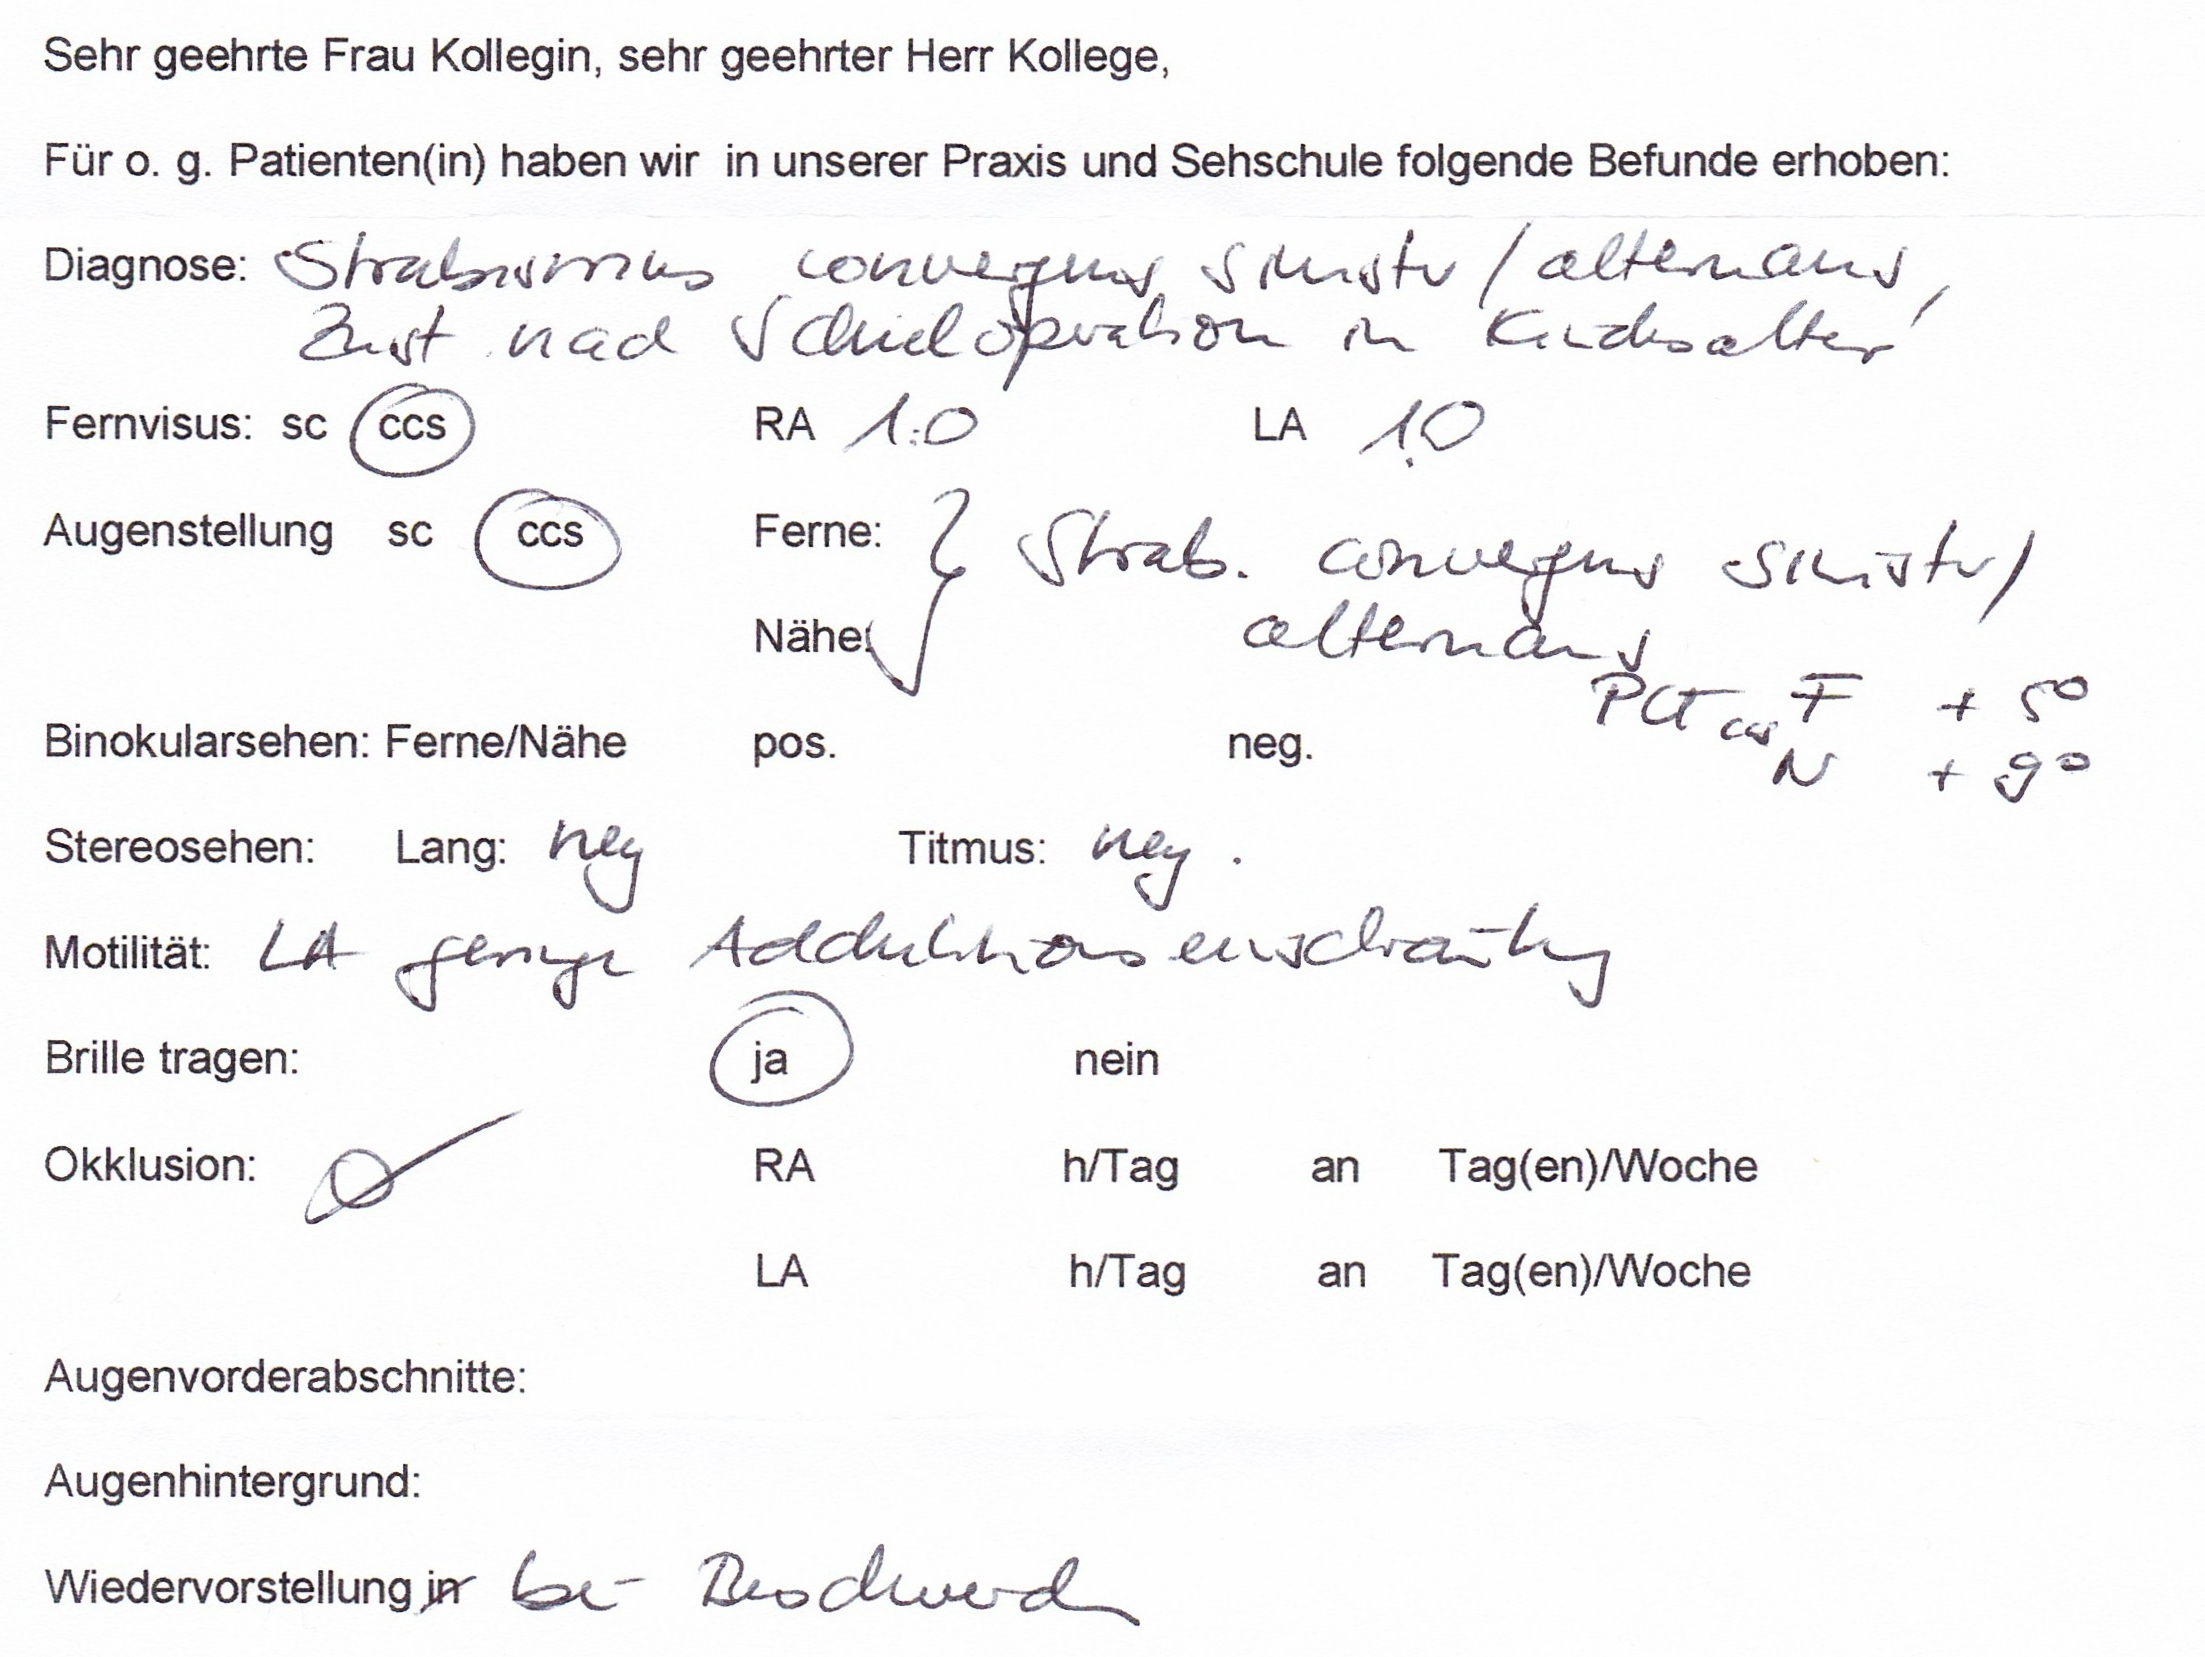 Sehr geehrte Frau Kollegin, sehr geehrter Herr Kollege,
Für o. g. Patienten(in) haben wir in unserer Praxis und Sehschule folgende Befunde erhoben:
Diagnose: Strabismus convergens sinistr / alternans,
Zust nach Schieloperation im Kindesalter
Fernvisus: sc ccs RA 1.0 LA 1.0
Augenstellung sc ccs Ferne: Strab. convergens sinistr /
Nähe: alternans
PCT ccs F + 5°
Binokularsehen: Ferne/Nähe pos. neg.
N + 9°
Stereosehen: Lang: neg Titmus: neg.
Motilität: LA geringe Adduktionseinschränkung
Brille tragen: ja nein
Okklusion: ∅ RA h/Tag an Tag(en)/Woche
LA h/Tag an Tag(en)/Woche
Augenvorderabschnitte:
Augenhintergrund:
Wiedervorstellung in bei Beschwerden